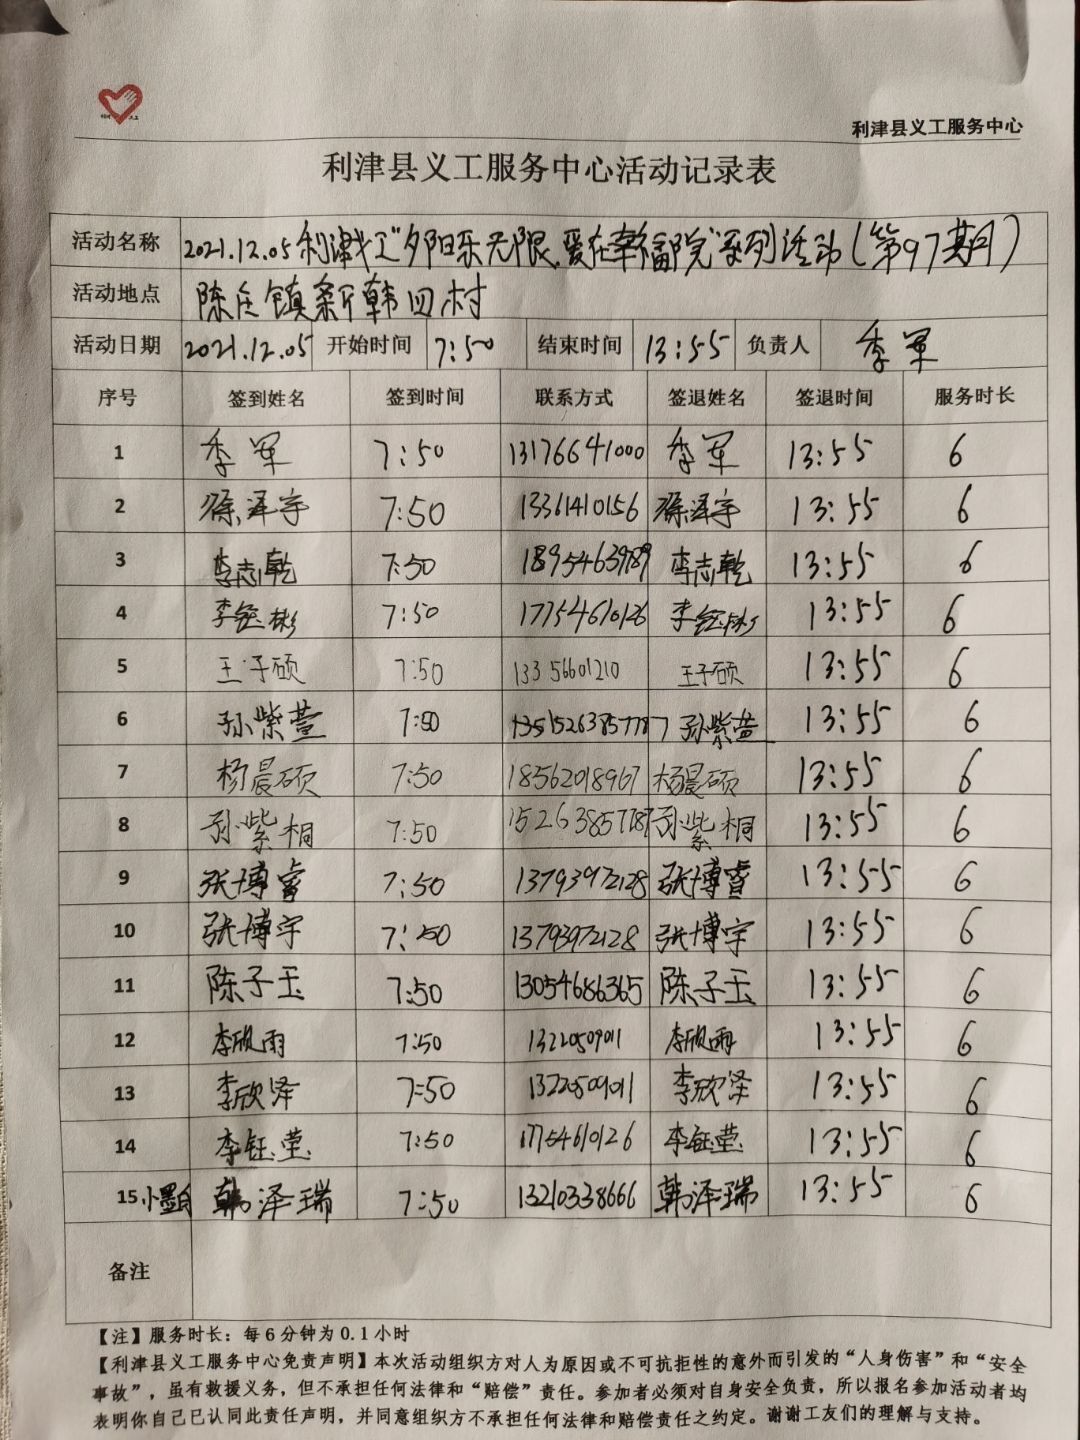 利津县义工服务中心
利津县义工服务中心活动记录表
活动名称 2021.12.05利津义工"夕阳乐无限,爱在幸福院"系列活动(第97期)
活动地点 陈庄镇新韩四村
活动日期 2021.12.05 开始时间 7:50 结束时间 13:55 负责人 季军
序号 签到姓名 签到时间 联系方式 签退姓名 签退时间 服务时长
1 季军 7:50 13176641000 季军 13:55 6
2 徐泽宇 7:50 13361410156 徐泽宇 13:55 6
3 李志乾 7:50 18954639789 李志乾 13:55 6
4 李钰彬 7:50 17754610126 李钰彬 13:55 6
5 王子硕 7:50 13356601210 王子硕 13:55 6
6 孙紫萱 7:50 15263857787 孙紫萱 13:55 6
7 杨晨硕 7:50 18562018967 杨晨硕 13:55 6
8 孙紫桐 7:50 15263857787 孙紫桐 13:55 6
9 张博睿 7:50 13793972128 张博睿 13:55 6
10 张博宇 7:50 13793972128 张博宇 13:55 6
11 陈子玉 7:50 13054686365 陈子玉 13:55 6
12 李欣雨 7:50 1322509011 李欣雨 13:55 6
13 李欣泽 7:50 1322509011 李欣泽 13:55 6
14 李钰莹 7:50 17754610126 李钰莹 13:55 6
15 小墨白 韩泽瑞 7:50 13210338666 韩泽瑞 13:55 6
备注
【注】服务时长:每6分钟为0.1小时
【利津县义工服务中心免责声明】本次活动组织方对人为原因或不可抗拒性的意外而引发的“人身伤害”和“安全
事故”,虽有救援义务,但不承担任何法律和“赔偿”责任。参加者必须对自身安全负责,所以报名参加活动者均
表明你自己已认同此责任声明,并同意组织方不承担任何法律和赔偿责任之约定。谢谢工友们的理解与支持。